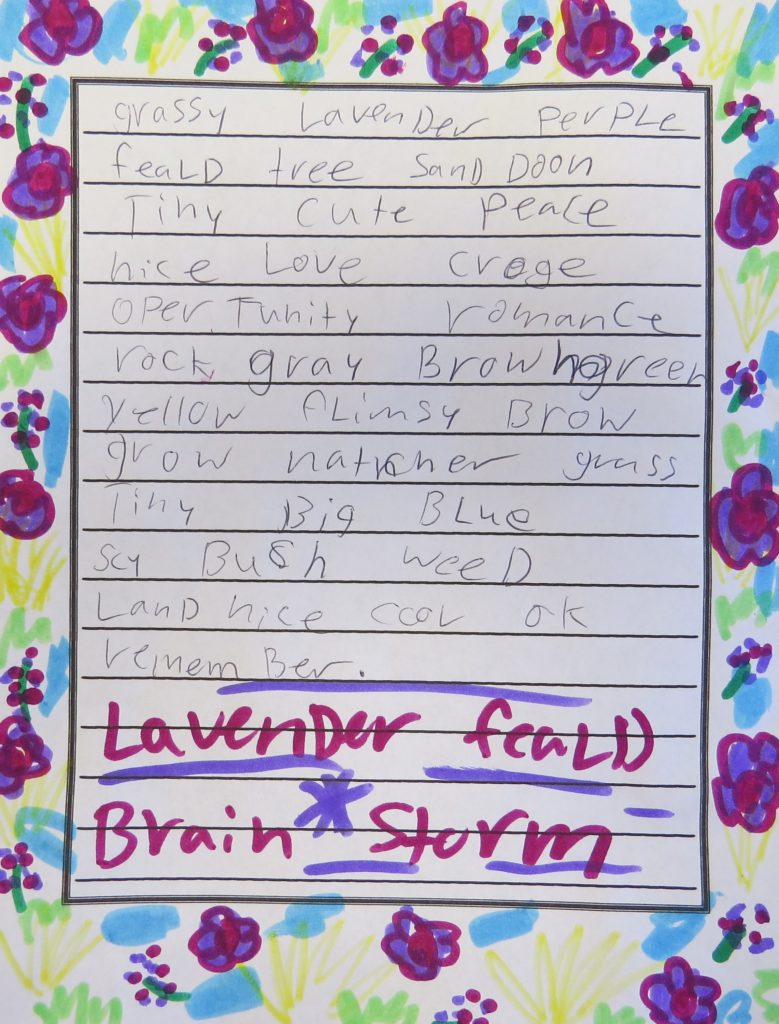 grassy Lavender perpLe
feaLD tree sand Doon
Tiny Cute peace
nice Love croge
oper Tunity romance
rock gray Brown green
yellow fLimsy Brow
grow natrcher grass
Tiny Big BLue
scy Bush weeD
LanD nice cooL ok
remem Ber.
LavenDer feaLD
Brain * Storm